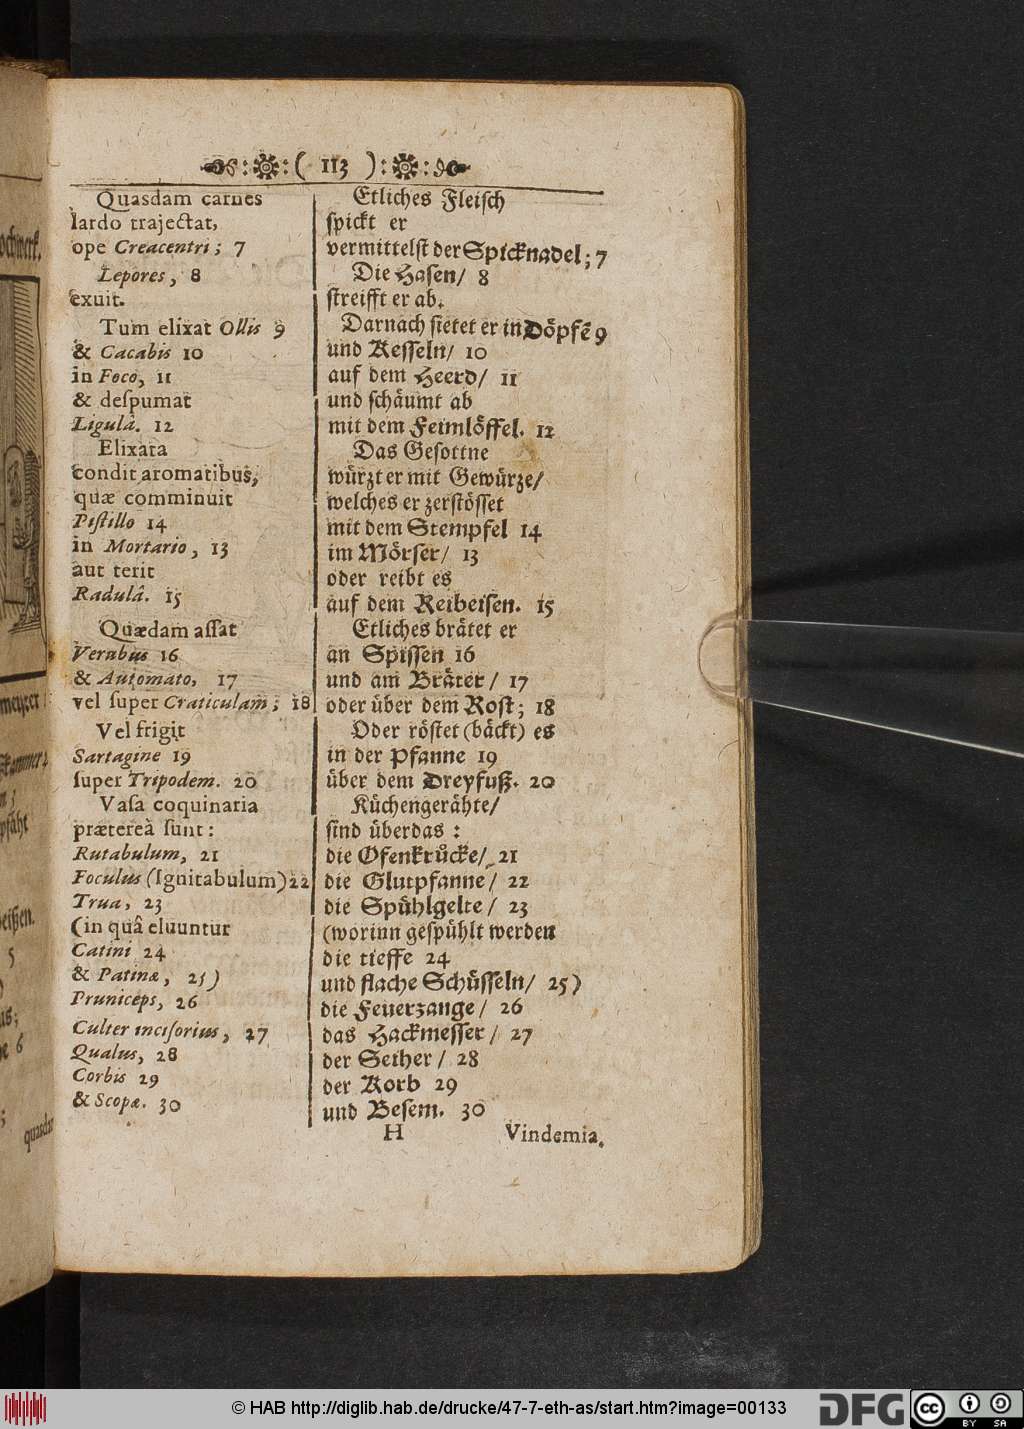 ( 113 )
Quasdam carnes
lardo trajectat,
ope Creacentri; 7
Lepores, 8
exuit.
Tum elixat Ollis 9
& Cacabis 10
in Foco, 11
& deſpumat
Ligulâ. 12
Elixata
condit aromatibus,
quæ comminuit
Piſtillo 14
in Mortario, 13
aut terit
Radulâ. 15
Quædam aſſat
Verubus 16
& Automato, 17
vel ſuper Craticulam; 18
Vel frigit
Sartagine 19
ſuper Tripodem. 20
Vaſa coquinaria
prætereà ſunt:
Rutabulum, 21
Foculus (Ignitabulum) 22
Trua, 23
(in quâ eluuntur
Catini 24
& Patinæ, 25)
Pruniceps, 26
Culter inciſorius, 27
Qualus, 28
Corbis 29
& Scopæ. 30
Etliches Fleiſch
ſpickt er
vermittelſt der Spicknadel; 7
Die Haſen/ 8
ſtreifft er ab.
Darnach ſietet er in Döpfē 9
und Keſſeln/ 10
auf dem Heerd/ 11
und ſchäumt ab
mit dem Feimlöffel. 12
Das Geſottne
würzt er mit Gewürze/
welches er zerſtöſſet
mit dem Stempfel 14
im Mörſer/ 13
oder reibt es
auf dem Reibeiſen. 15
Etliches brätet er
an Spiſſen 16
und am Bräter/ 17
oder über dem Roſt; 18
Oder röſtet (bäckt) es
in der Pfanne 19
über dem Dreyfuß. 20
Küchengerähte/
ſind überdas:
die Ofenkrůcke/ 21
die Glutpfanne/ 22
die Spühlgelte/ 23
(worinn geſpühlt werden
die tieffe 24
und flache Schüſſeln/ 25)
die Feuerzange/ 26
das Hackmeſſer/ 27
der Seiher/ 28
der Korb 29
und Beſem. 30
H Vindemia.
© HAB http://diglib.hab.de/drucke/47-7-eth-as/start.htm?image=00133
DFG
cc BY SA